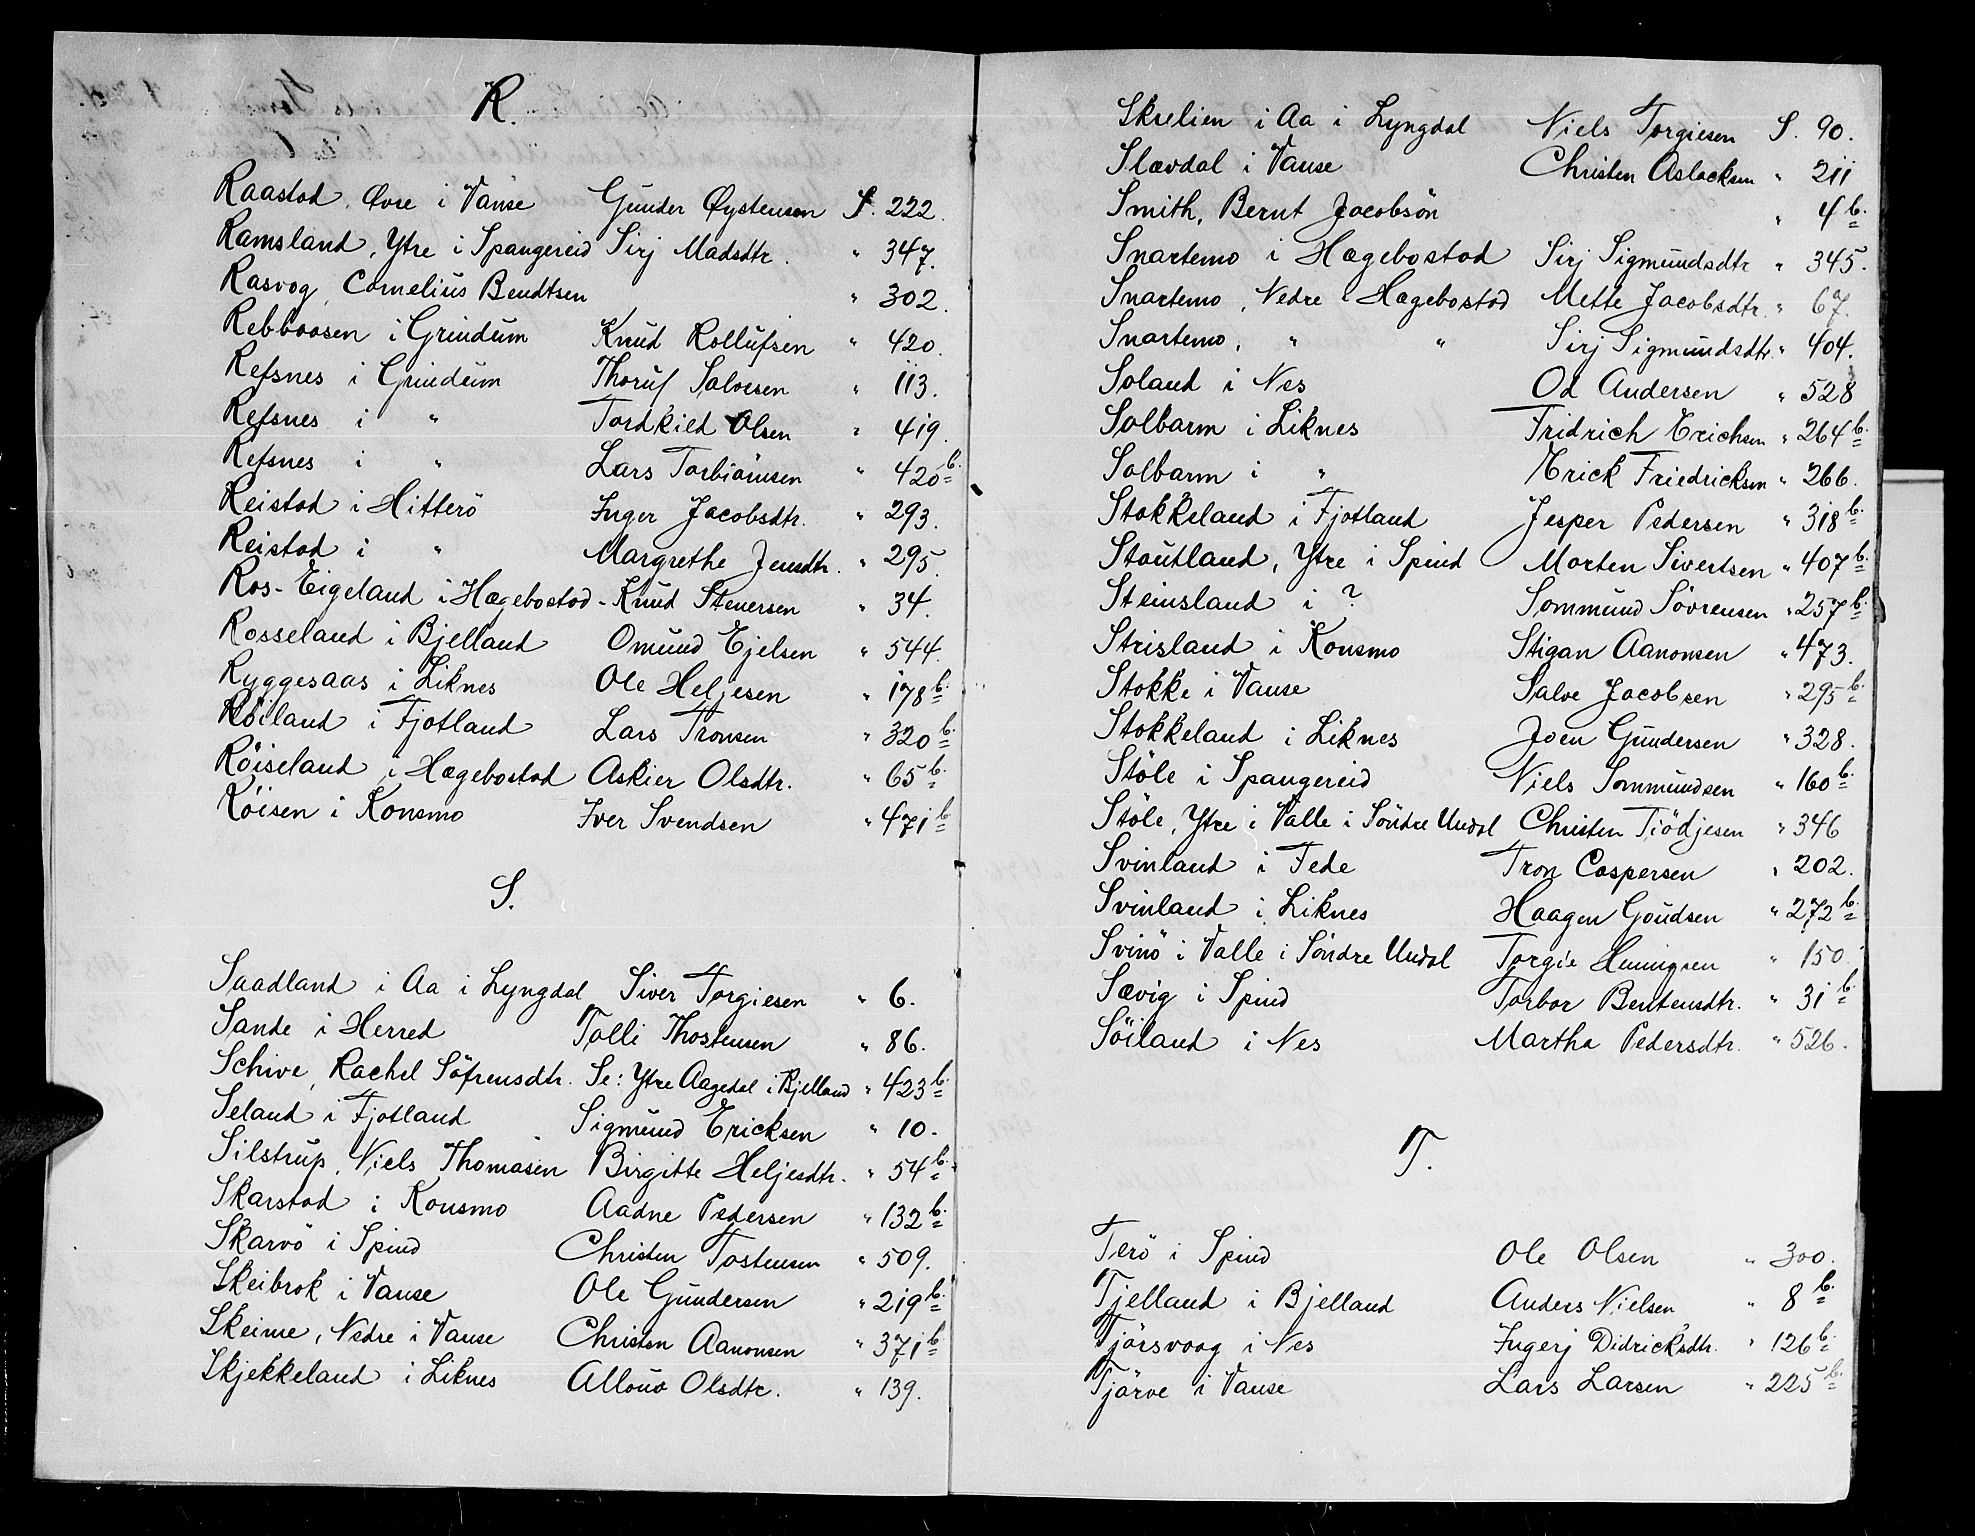 R.
Raastad, Øvre i Vanse Gunder Øystensen S. 222.
Ramsland, Ytre i Spangereid Sirj Madsdtr. " 347.
Rasvog, Cornelius Bendtsen " 302.
Rebbaasen i Grindum Knud Rollufsen " 420.
Refsnes i Grindum Thoruf Salvesen " 113.
Refsnes i " Tordkild Olsen " 419.
Refsnes i " Lars Torbiörnsen " 420 b.
Reistad i Hitterö Inger Jacobsdtr. " 293.
Reistad i " Margrethe Jensdtr. " 295.
Ros-Eigeland i Hægebostad - Knud Stenersen " 34.
Rosseland i Bjelland Omund Ejelsen " 544.
Ryggesaas i Liknes Ole Heljesen " 178 b.
Röiland i Fjotland Lars Tronsen " 320 b.
Röiseland i Hægebostad Askier Olsdtr. " 65 b.
Röisen i Konsmo Iver Svendsen " 471 b.
S.
Saadland i Aa i Lyngdal Siver Torgiesen " 6.
Sande i Herred Tolli Thostensen " 86.
Schive, Rachel Söfrensdtr. Se: Ytre Aagedal i Bjelland " 423 b.
Seland i Fjotland Sigmund Ericksen " 10.
Silstrup, Niels Thomasen Birgitte Heljesdtr. " 54 b.
Skarstad i Konsmo Aadne Pedersen " 132 b.
Skarvö i Spind Christen Tostensen " 509.
Skeibrok i Vanse Ole Gundersen " 219 b.
Skeime, Nedre i Vanse Christen Aanonsen " 371 b.
Skjekkeland i Liknes Allouo Olsdtr. " 139.
Skrelien i Aa i Lyngdal Niels Torgiesen S. 90.
Slævdal i Vanse Christen Aslacksen " 211
Smith, Bernt Jacobsön " 4 b.
Snartemo i Hægebostad Sirj Sigmundsdtr " 345.
Snartemo, Nedre i Hægebostad Mette Jacobsdtr. " 67.
Snartemo, " " Sirj Sigmundsdtr. " 404.
Soland i Nes Od Andersen " 528
Solbarm i Liknes Fridrich Erichsen " 264 b.
Solbarm i " Erick Friedricksen " 266.
Stokkeland i Fjotland Jesper Pedersen " 318 b.
Stoutland, Ytre i Spind Morten Sivertsen " 407 b.
Steinsland i ? Sommund Sövrensen " 257 b.
Strisland i Konsmo Stigan Aanonsen " 473.
Stokke i Vanse Salve Jacobsen " 295 b.
Stokkeland i Liknes Joen Gundersen " 328.
Stöle i Spangereid Niels Sommundsen " 160 b.
Stöle, Ytre i Valle i Söndre Undal Christen Tiödjesen " 346
Svinland i Fede Tron Caspersen " 202.
Svinland i Liknes Haagen Goudsen " 272 b.
Svinö i Valle i Söndre Undal Torgie Henningsen " 150
Sævig i Spind Torbor Bentensdtr. " 31 b.
Söiland i Nes Martha Pedersdtr. " 526.
T.
Terö i Spind Ole Olsen " 300.
Tjelland i Bjelland Anders Nielsen " 8 b.
Tjörsvaag i Nes Ingerj Didricksdtr. " 126 b.
Tjörve i Vanse Lars Larsen " 225 b.